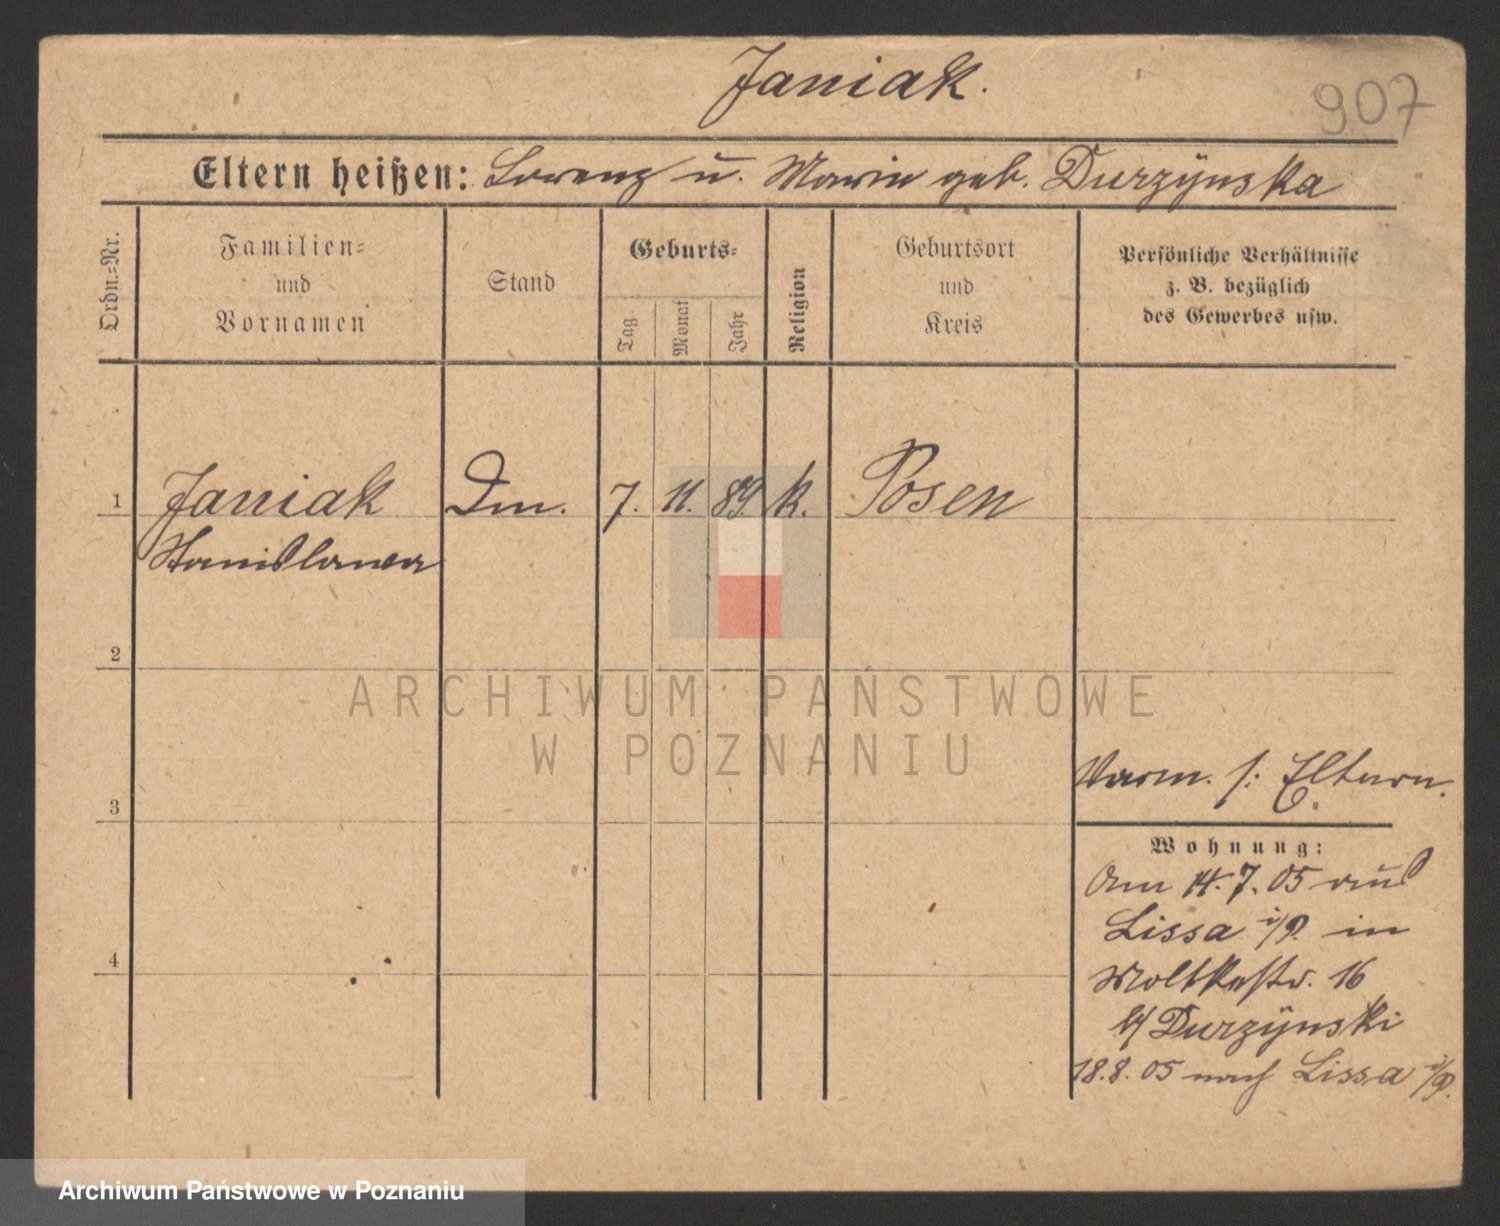 Janiak.
907
Eltern heißen: Lorenz u. Marie geb. Durzÿnska
Ordn.=Nr.
Familien=
und
Vornamen
Stand
Geburts=
Tag
Monat
Jahr
Religion
Geburtsort
und
Kreis
Persönliche Verhältnisse
z. B. bezüglich
des Gewerbes usw.
1 Janiak Dm. 7. 11. 89. k. Posen
Stanislawa
2
ARCHIWUM PAŃSTWOWE
W POZNANIU
3
Verm. s: Eltern.
Wohnung:
Am 14.7.05 aus
Lissa i/P. in
Moltkestr. 16
b/ Durzÿnski
4
18.8.05 nach Lissa i/P.
Archiwum Państwowe w Poznaniu